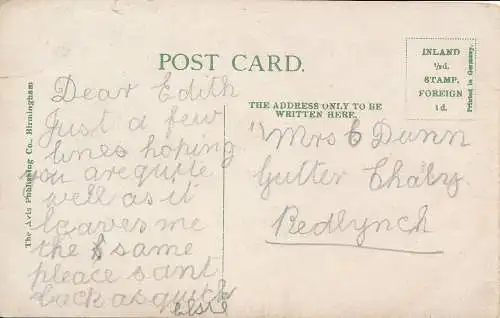 POST CARD.
INLAND
½d.
STAMP.
FOREIGN
1d.
Printed in Germany.
The Avis Publishing Co., Birmingham
THE ADDRESS ONLY TO BE
WRITTEN HERE.
Dear Edith
Just a few
lines hoping
you are quite
well as it
leaves me
the same
pleace sant
back as quick
Elsie
Mrs C Dunn
Gutter Chaly
Redlynch